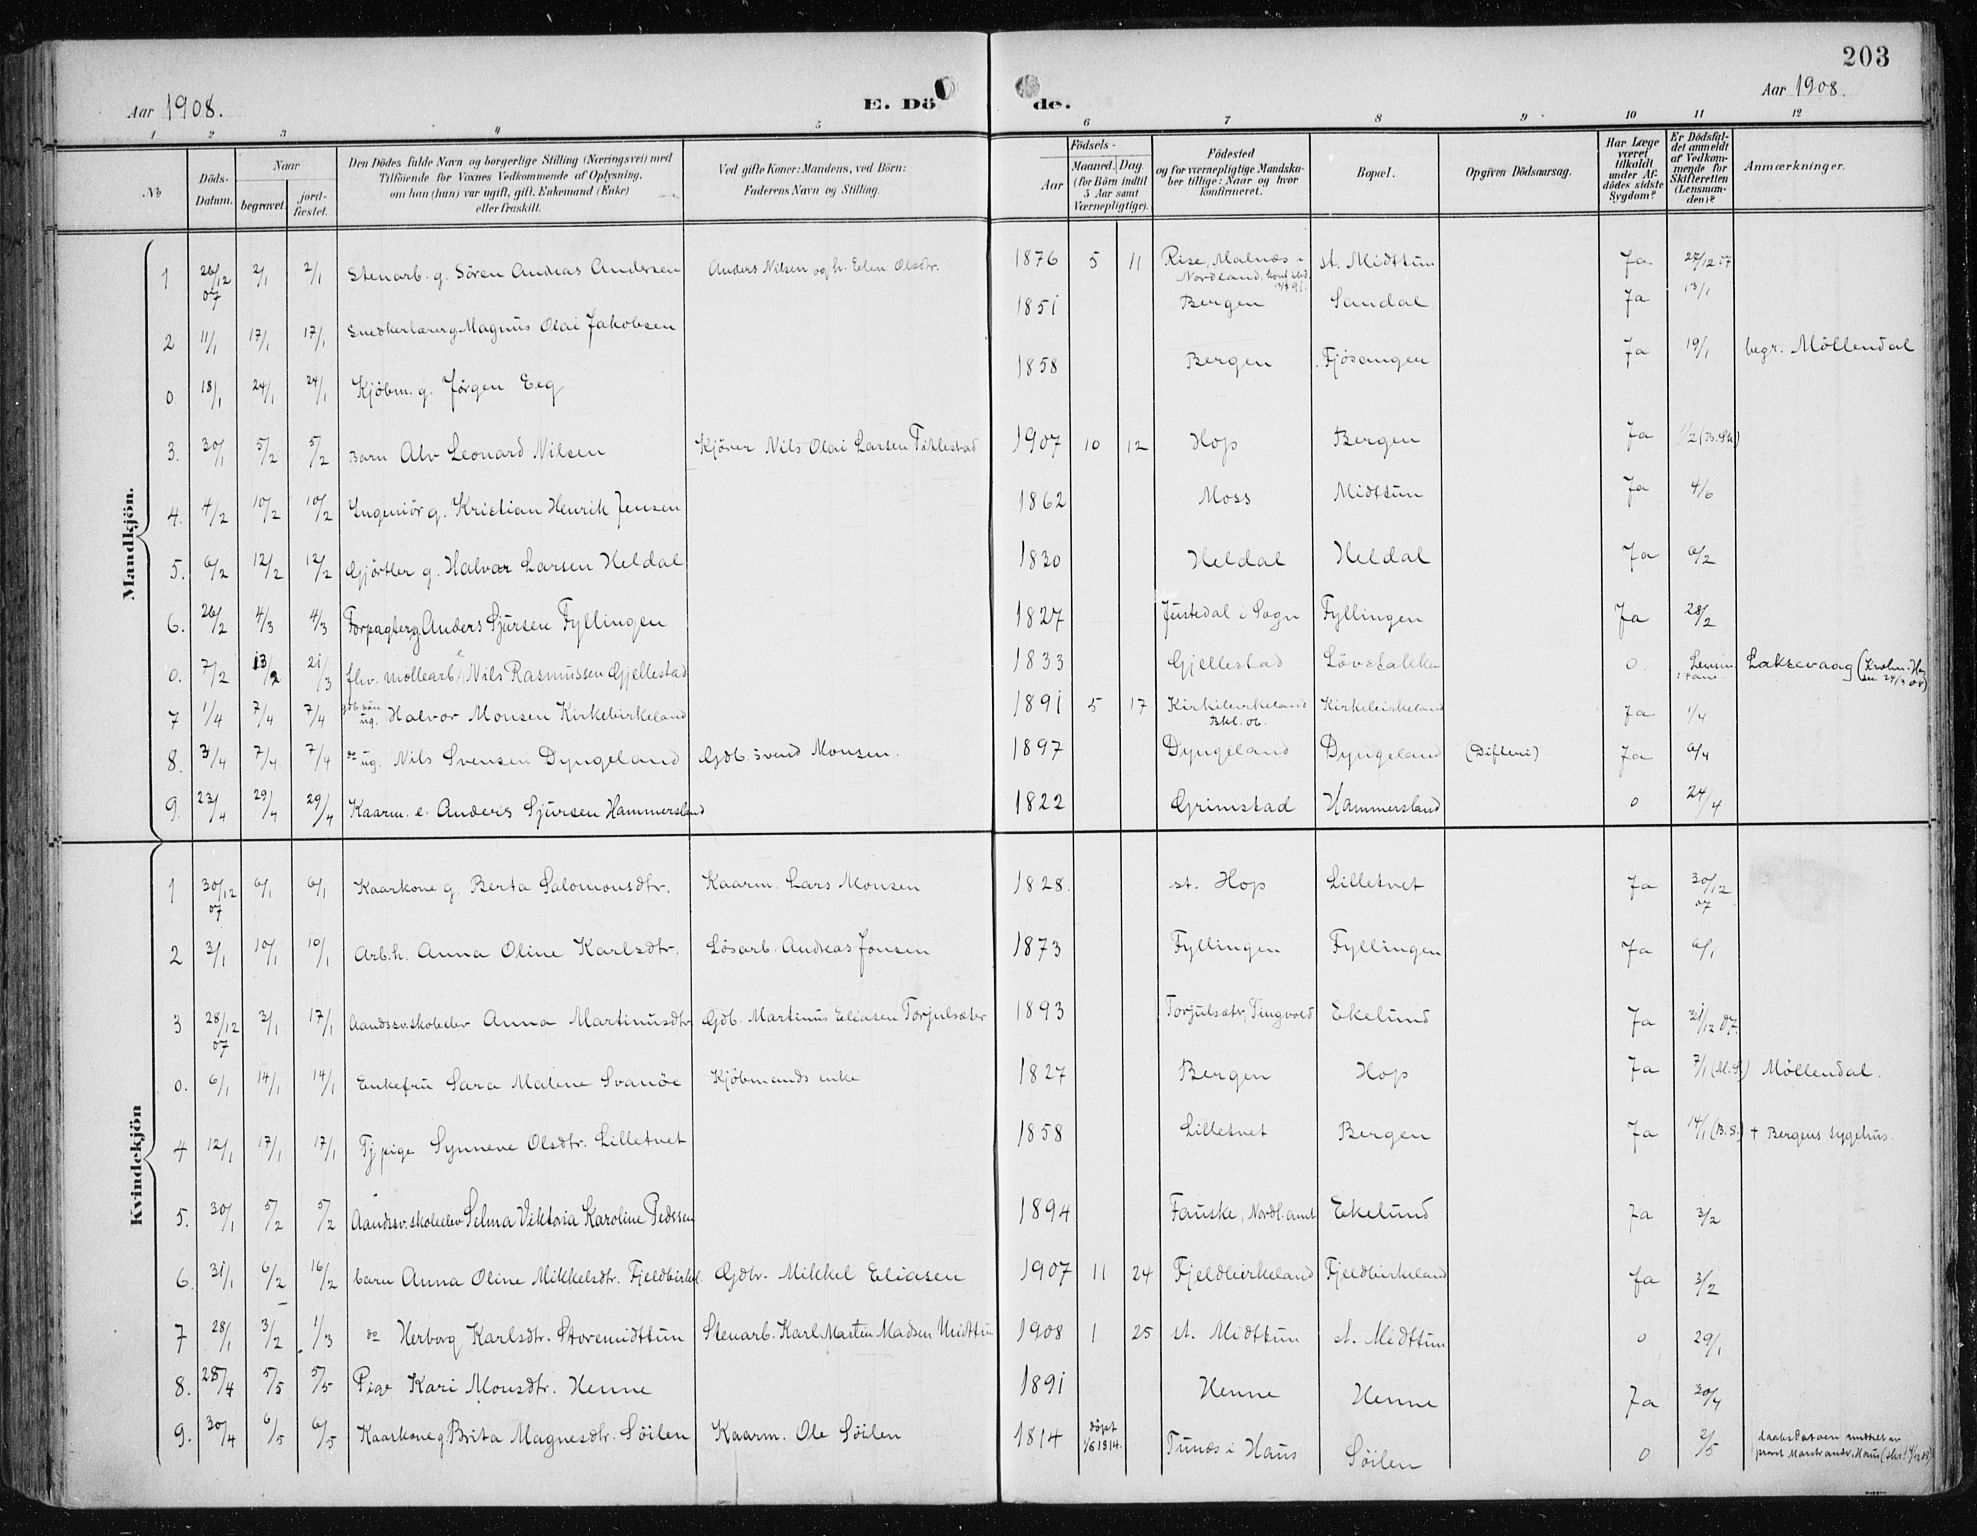 203
Aar 1908. E. Dö de. Aar 1908.
1 2 3 4 5 6 7 8 9 10 11 12
No Döds-Datum. Naar begravet. jord-fæstet. Den Dödes fulde Navn og borgerlige Stilling (Næringsvei) med Tilföiende for Voxnes Vedkommende af Oplysning, om han (hun) var ugift, gift, Enkemand (Enke) eller fraskilt. Ved gifte Koner: Mandens, ved Börn: Faderens Navn og Stilling. Födsels- Aar Maaned. Dag. (for Börn indtil 5 Aar samt Værnepligtige). Födested og for værnepligtige Mandskaber tillige: Naar og hvor konfirmeret. Bopæl. Opgiven Dödsaarsag. Har Læge været tilkaldt under Afdödes sidste Sygdom? Er Dödsfaldet anmeldt af Vedkommende for Skifteretten (Lensmanden)? Anmærkninger.
Mandkjön.
1 26/12 07 2/1 2/1 Stenarb. g. Sören Andreas Andersen Anders Nilsen og h. Elen Olsdtr. 1876 5 11 Rise, Malnæs i Nordland, st. Midttun Ja. 27/12 07
2 11/1 17/1 17/1 Snedkerlærer g. Magnus Olai Jakobsen 1851 Bergen Sandal Ja 13/1
0 18/1 24/1 24/1 Kjöbm. g. Jørgen Eeg 1858 Bergen Fjösangen Ja 19/1 begr. Möllendal
3. 30/1 5/2 5/2 Barn Alv Leonard Nilsen Kjörer Nils Olai Larsen Tiklestad 1907 10 12 Hop Bergen Ja 1/2
4. 4/2 10/2 10/2 Ingeniör g. Kristian Henrik Jensen 1862 Moss Midttun Ja 4/6
5. 6/2 12/2 12/2 Gjörtler g. Halvar Larsen Heldal 1830 Heldal Heldal Ja 6/2
6. 26/2 4/3 4/3 Forpagter g. Anders Sjursen Fyllingen 1827 Justedal i Sogn Fyllingen Ja 28/2
0. 7/2 13/2 21/3 fhv. möllearb. Nils Rasmussen Gjellestad 1833 Gjellestad Lövstakken 0. Lensm. i Fane. Laksevaag
7 1/4 7/4 7/4 gdb. sön ug. Halvor Monsen Kirkebirkeland 1891 5 17 Kirkebirkeland Bkl. 06. Kirkebirkeland Ja 1/4
8. 3/4 7/4 7/4 do ug. Nils Svensen Dyngeland Gdb. Svend Monsen. 1897 Dyngeland Dyngeland (Difteri) Ja 6/4
9. 23/4 29/4 29/4 Kaarm. e. Anders Sjursen Hammersland 1822 Grimstad Hammersland 0 24/4
Kvindekjön
1 30/12 07 6/1 6/1 Kaarkone g. Berta Salomonsdtr. Kaarm. Lars Monsen 1828. st. Hop Lilletvet Ja 30/12 07
2 3/1 10/1 10/1 Arb.h. Anna Oline Karlsdtr. Lösarb. Andreas Jonsen 1873 Fyllingen Fyllingen Ja 6/1
3 28/12 07 3/1 17/1 Aandssv. skoleelev Anna Martinusdtr Gdb. Martinus Eliasen Torjulsæter 1893 Torjulsætr, Tingvold Ekelund Ja 31/12 07.
0. 6/1 14/1 14/1 Enkefru Sara Malene Svanöe Kjöbmands enke 1827 Bergen Hop Ja 7/1 Möllendal.
4 12/1 17/1 17/1 Tj pige Synneve Olsdtr. Lilletvet 1858 Lilletvet Bergen Ja 14/1 (B.S.) + Bergens sygehus.
5. 30/1 5/2 5/2 Aandssv. skoleelev Selma Viktoria Karoline Pedssen 1894 Fauske, Nordl. amt Ekelund Ja 3/2
6. 31/1 6/2 16/2 barn Anna Oline Mikkelsdtr. Fjeldbirkel. Gdbr. Mikkel Eliasen 1907 11 24 Fjeldbirkeland Fjeldbirkeland Ja 3/2
7 28/1 3/2 1/3 do Herborg Karlsdtr. Storemidttun Stenarb. Karl Martin Madsen Midttun 1908 1 25 st. Midttun st. Midttun 0 29/1
8. 28/4 5/5 5/5 Pige Kari Monsdtr. Henne 1891 Henne Henne Ja 30/4
9. 30/4 6/5 6/5 Kaarkone g. Brita Magnesdtr. Söilen Kaarm. Ole Söilen 1814 döpt 1/6 1814. Tunæs i Haus Söilen 0 2/5